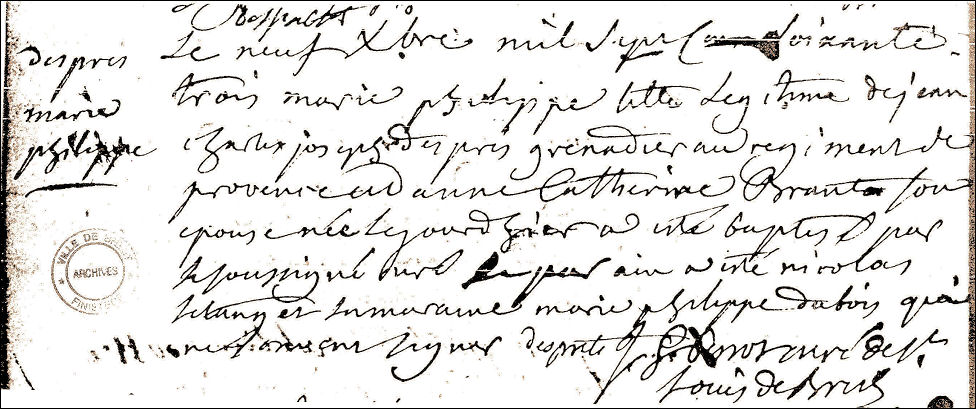 despres
marie
philippe
Le neuf Xbre mil Sept Cent Soixante
trois marie philippe fille Legitime de jean
charles joseph despres grenadier au regiment de
provence et d anne Catherine Brants son
epouse née Le jour d hier a eté baptisé par
le soussigné curé le parain a eté nicolas
et La maraine marie philippe dubois qui
ne Scavent Signer curé de St
Louis de Brest
VILLE DE BREST
ARCHIVES
FINISTERE